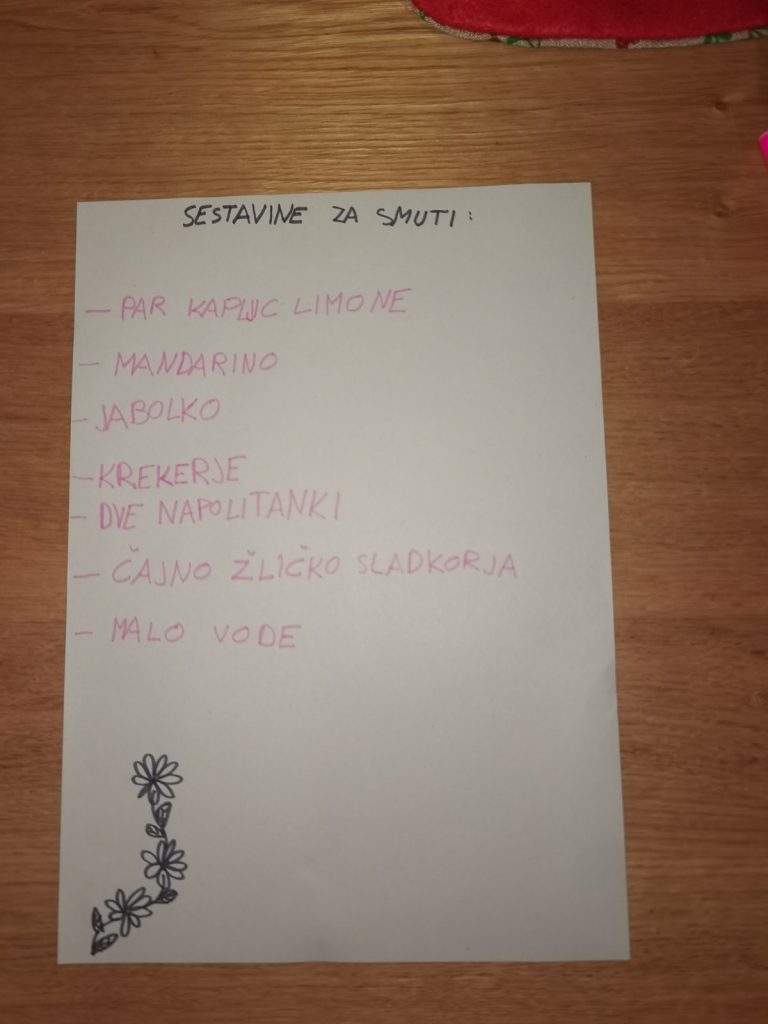 SESTAVINE ZA SMUTI:
- PAR KAPLJIC LIMONE
- MANDARINO
- JABOLKO
- KREKERJE
- DVE NAPOLITANKI
- ČAJNO ŽLIČKO SLADKORJA
- MALO VODE